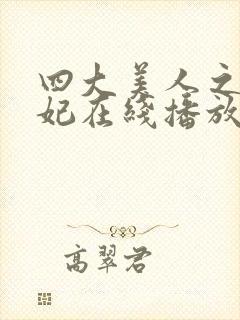 四大美人之
妃在线播放
高翠君